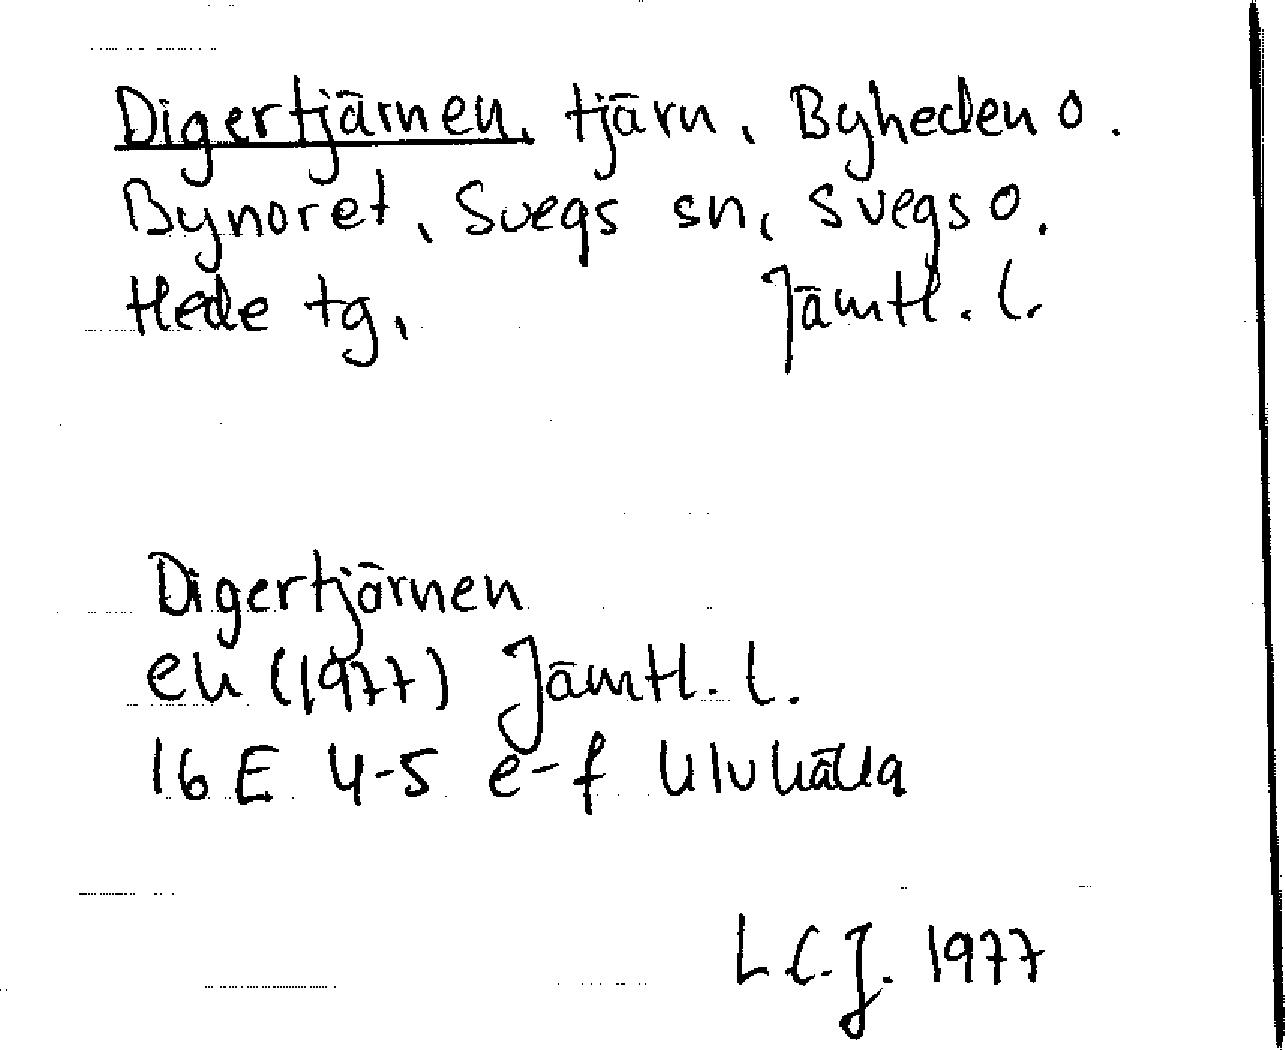 Digertjärnen, tjärn, Byheden o.
Bynoret, Svegs sn, Svegs o.
Hede tg, Jämtl. l.
Digertjärnen
ek (1977) Jämtl. l.
16 E 4-5 e-f Ulvkälla
L C.J. 1977